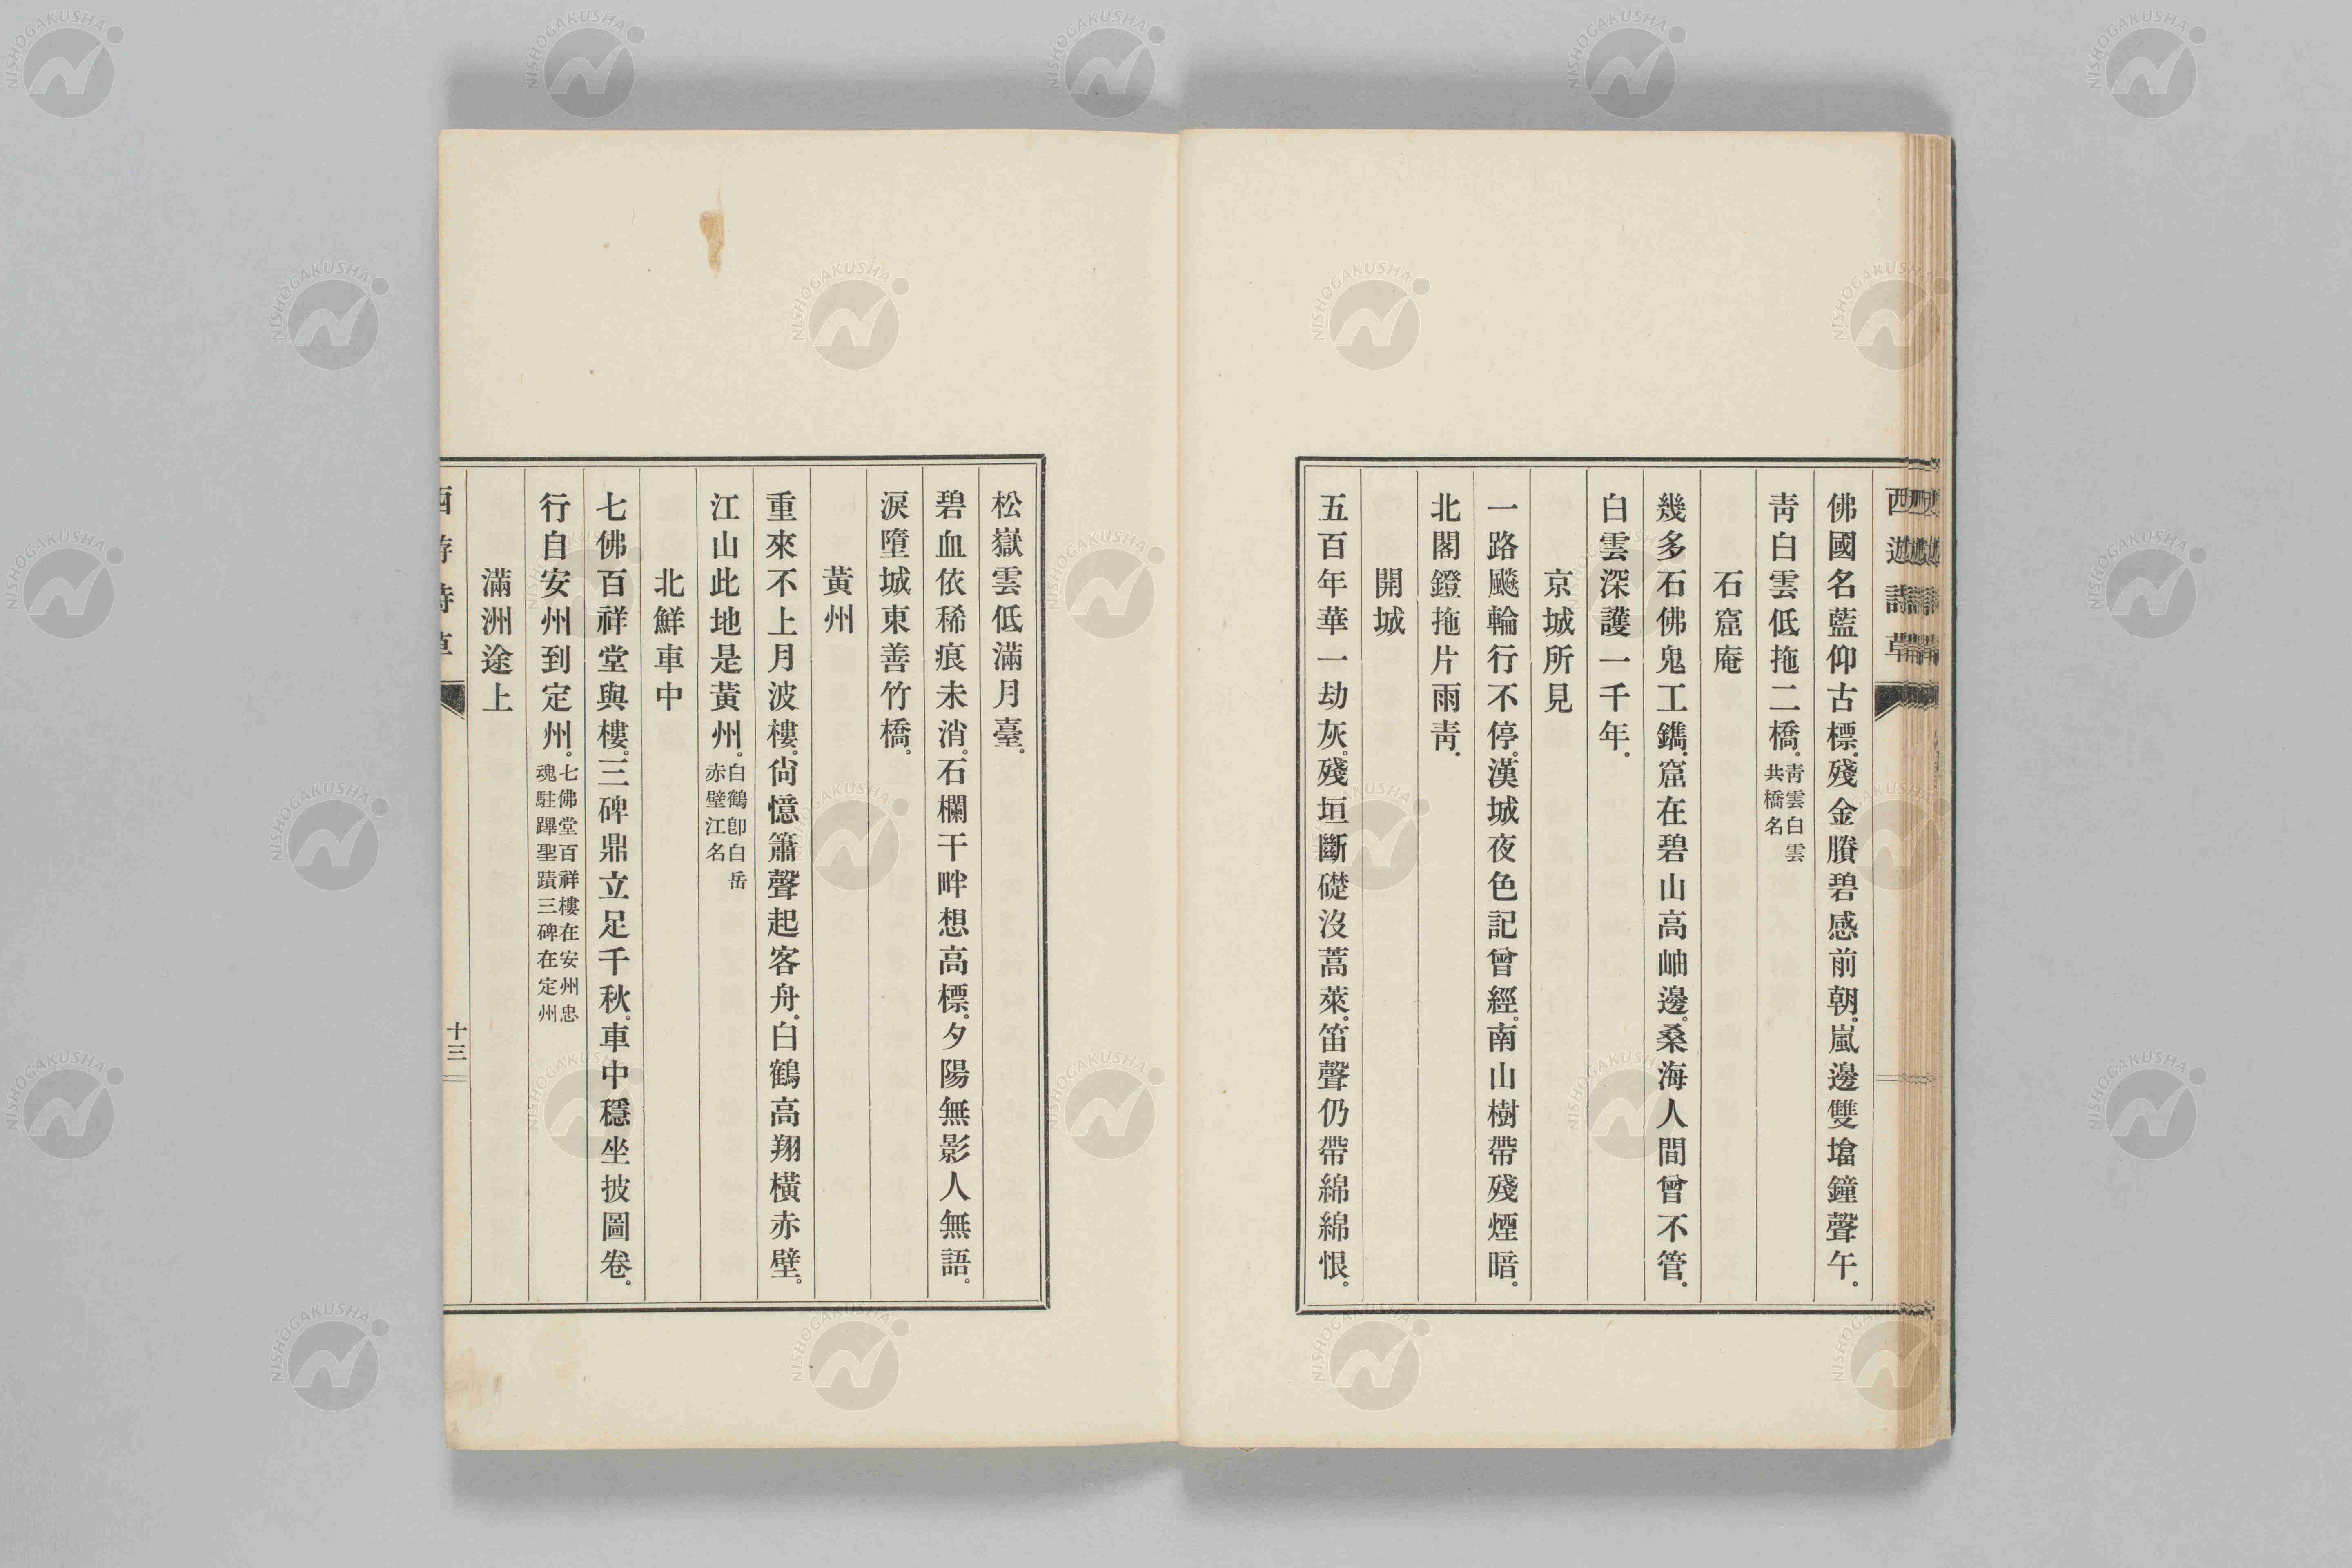 西遊詩草
佛國名藍仰古標。殘金賸碧感前朝。嵐邊雙墖鐘聲午。
靑白雲低拖二橋。靑雲白雲共橋名
石窟庵
幾多石佛鬼工鐫。窟在碧山高岫邊。桑海人間曾不管。
白雲深護一千年。
京城所見
一路飈輪行不停。漢城夜色記曾經。南山樹帶殘煙暗。
北閣鐙拖片雨靑。
開城
五百年華一劫灰。殘垣斷礎沒蒿萊。笛聲仍帶綿綿恨。
松嶽雲低滿月臺。
碧血依稀痕未消。石欄干畔想高標。夕陽無影人無語。
淚墮城東善竹橋。
黃州
重來不上月波樓。尙憶簫聲起客舟。白鶴高翔橫赤壁。
江山此地是黃州。白鶴卽白岳赤壁江名
北鮮車中
七佛百祥堂與樓。三碑鼎立足千秋。車中穩坐披圖卷。
行自安州到定州。七佛堂百祥樓在安州忠魂駐蹕聖蹟三碑在定州
滿洲途上
西遊詩草
十三
NISHOGAKUSHA